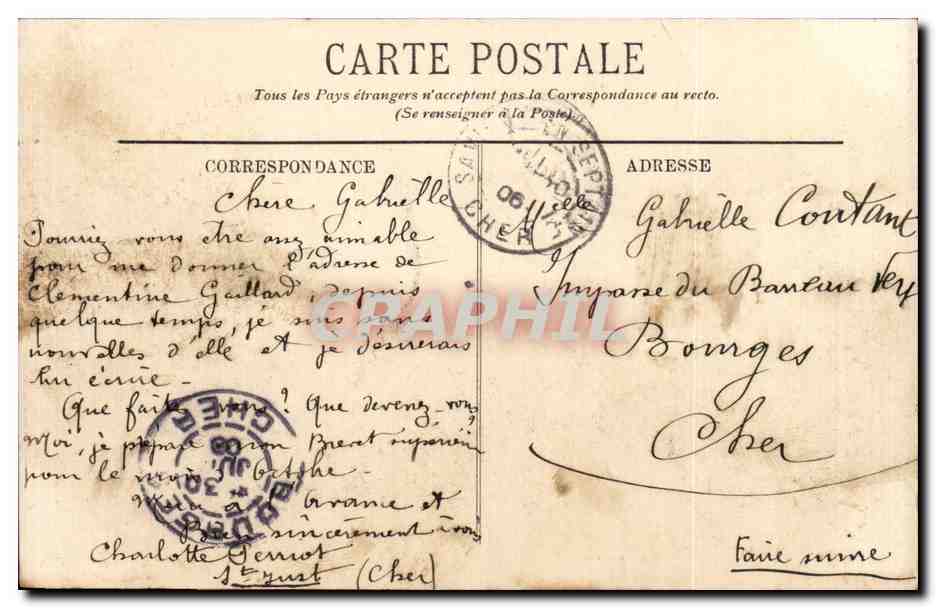 CARTE POSTALE
Tous les Pays étrangers n'acceptent pas la Correspondance au recto.
(Se renseigner à la Poste)
CORRESPONDANCE
Chère Gabrielle
Pourriez vous être assez aimable
pour me donner l'adresse de
Clémentine Gaillard, depuis
quelque temps, je suis sans
nouvelles d'elle et je désirerais
lui écrire -
Que faites vous? Que devenez-vous?
Moi, je prépare mon Brevet supérieur
pour le mois d'octobre -
Merci d'avance et
Bien sincèrement à vous
Charlotte Perriot
St Just (Cher)
ADRESSE
Melle Gabrielle Coutant
Impasse du Barreau Vert
Bourges
Cher
Faire suivre
CHER
06
BOURGES
CHER
30
JUIL
CRAPHIL